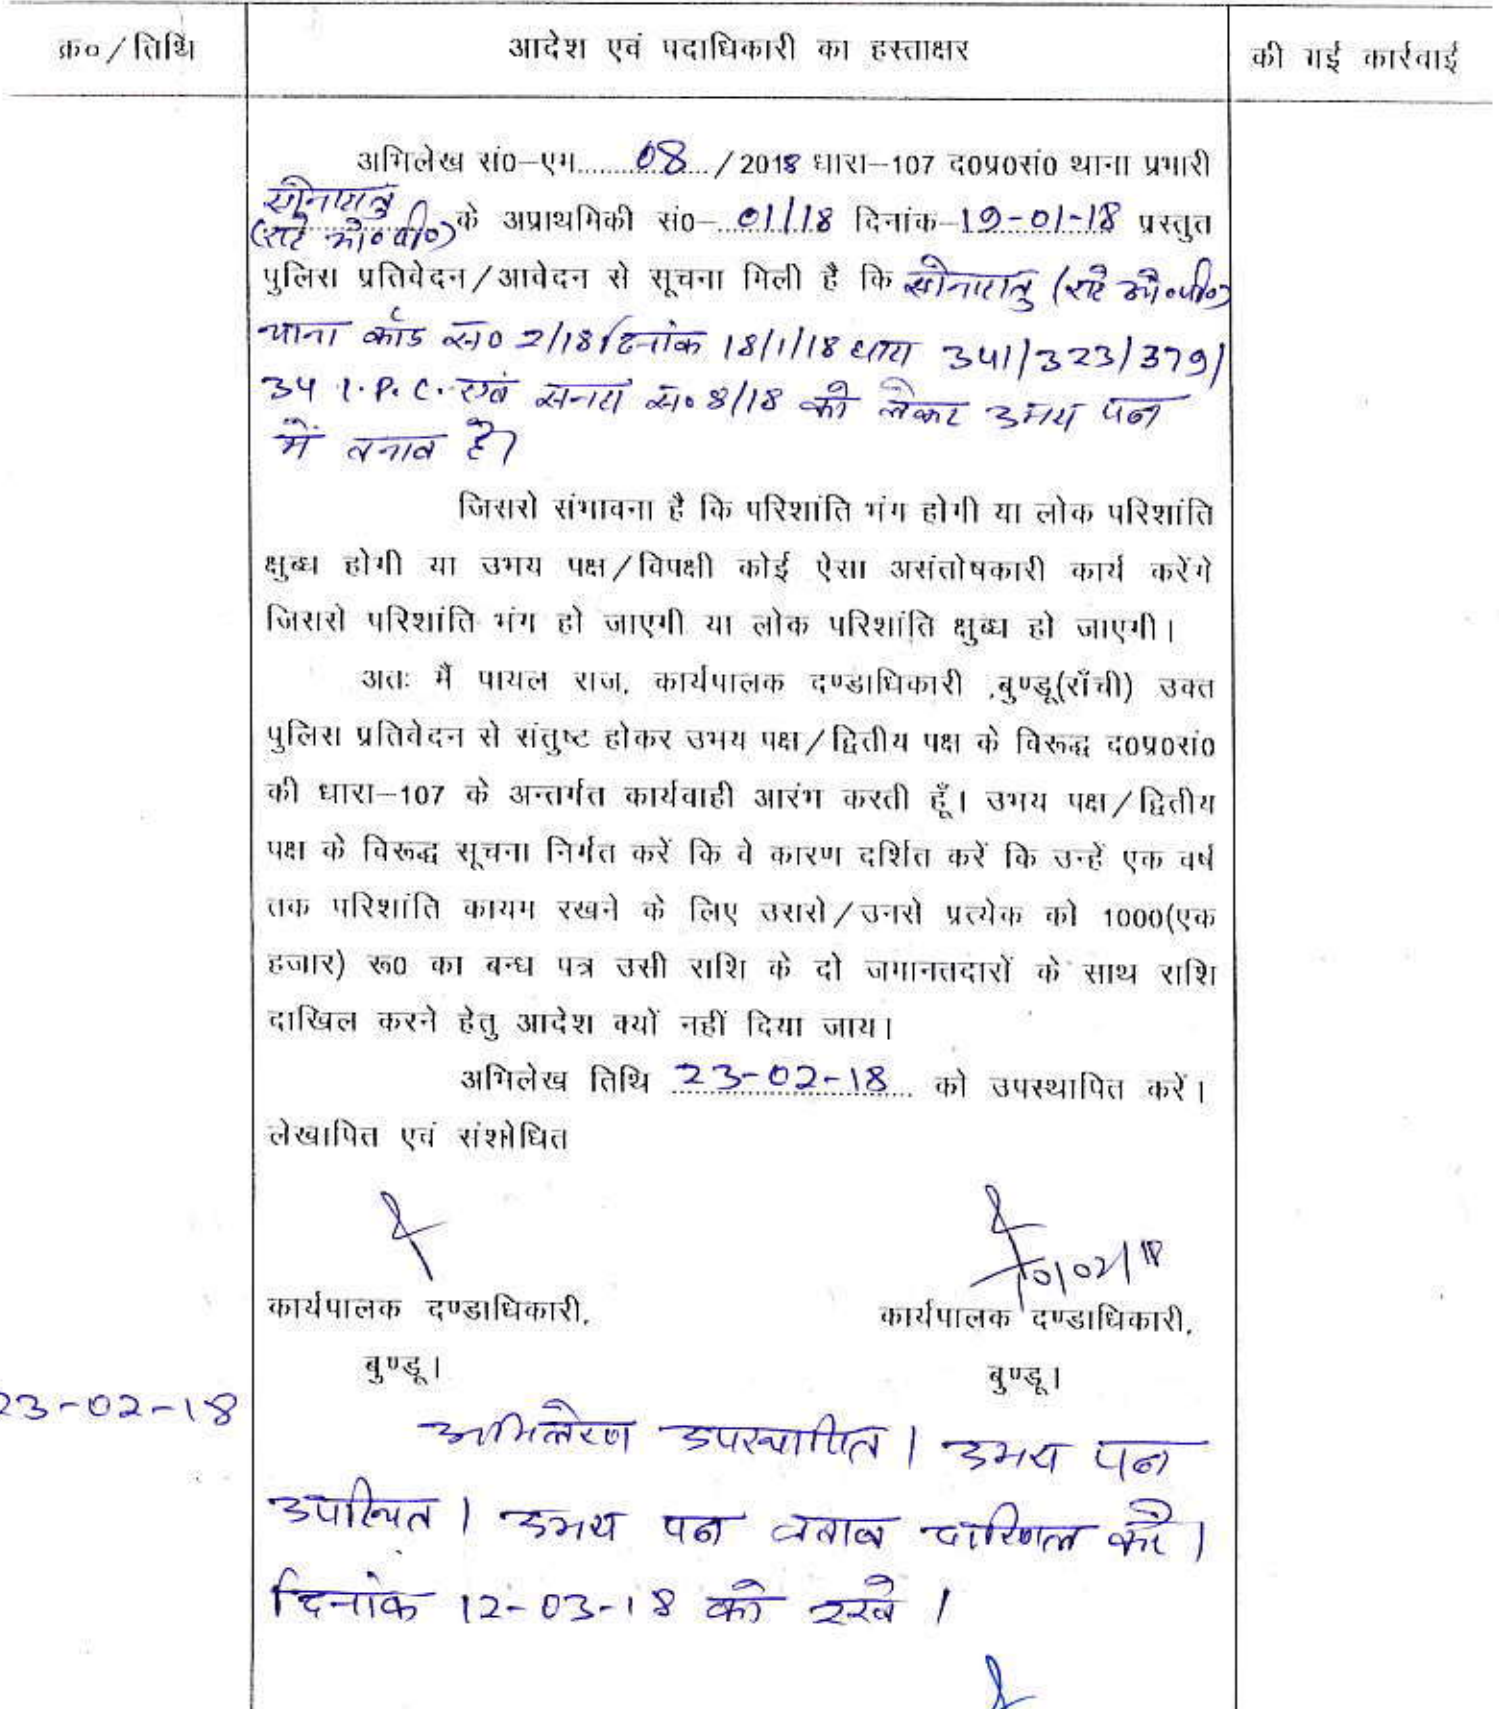 क्र०/तिथि
आदेश एवं पदाधिकारी का हस्ताक्षर
की गई कार्रवाई
अभिलेख सं०–एम........08..../2018 धारा–107 द०प्र०सं० थाना प्रभारी
सोनाहातु
(राहे ओ०पी०) के अप्राथमिकी सं०– 01/18 दिनांक–19-01-18 प्रस्तुत
पुलिस प्रतिवेदन/आवेदन से सूचना मिली है कि सोनाहातु (राहे ओ०पी०)
थाना कांड सं० 2/18 दिनांक 18/1/18 धारा 341/323/379/
34 I.P.C. एवं सनहा सं० 8/18 को लेकर उभय पक्ष
में तनाव है।
जिससे संभावना है कि परिशांति भंग होगी या लोक परिशांति
क्षुब्ध होगी या उभय पक्ष/विपक्षी कोई ऐसा असंतोषकारी कार्य करेंगे
जिससे परिशांति भंग हो जाएगी या लोक परिशांति क्षुब्ध हो जाएगी।
अतः मैं पायल राज, कार्यपालक दण्डाधिकारी ,बुण्डू(राँची) उक्त
पुलिस प्रतिवेदन से संतुष्ट होकर उभय पक्ष/द्वितीय पक्ष के विरूद्ध द०प्र०सं०
की धारा–107 के अन्तर्गत कार्यवाही आरंभ करती हूँ। उभय पक्ष/द्वितीय
पक्ष के विरूद्ध सूचना निर्गत करें कि वे कारण दर्शित करें कि उन्हें एक वर्ष
तक परिशांति कायम रखने के लिए उससे/उनसे प्रत्येक को 1000(एक
हजार) रू० का बन्ध पत्र उसी राशि के दो जमानतदारों के साथ राशि
दाखिल करने हेतु आदेश क्यों नहीं दिया जाय।
अभिलेख तिथि 23-02-18 को उपस्थापित करें।
लेखापित एवं संशोधित
01/02/18
कार्यपालक दण्डाधिकारी,
कार्यपालक दण्डाधिकारी,
बुण्डू।
बुण्डू।
23-02-18
अभिलेख उपस्थापित। उभय पक्ष
उपस्थित। उभय पक्ष जवाब दाखिल करें।
दिनांक 12-03-18 को रखें।